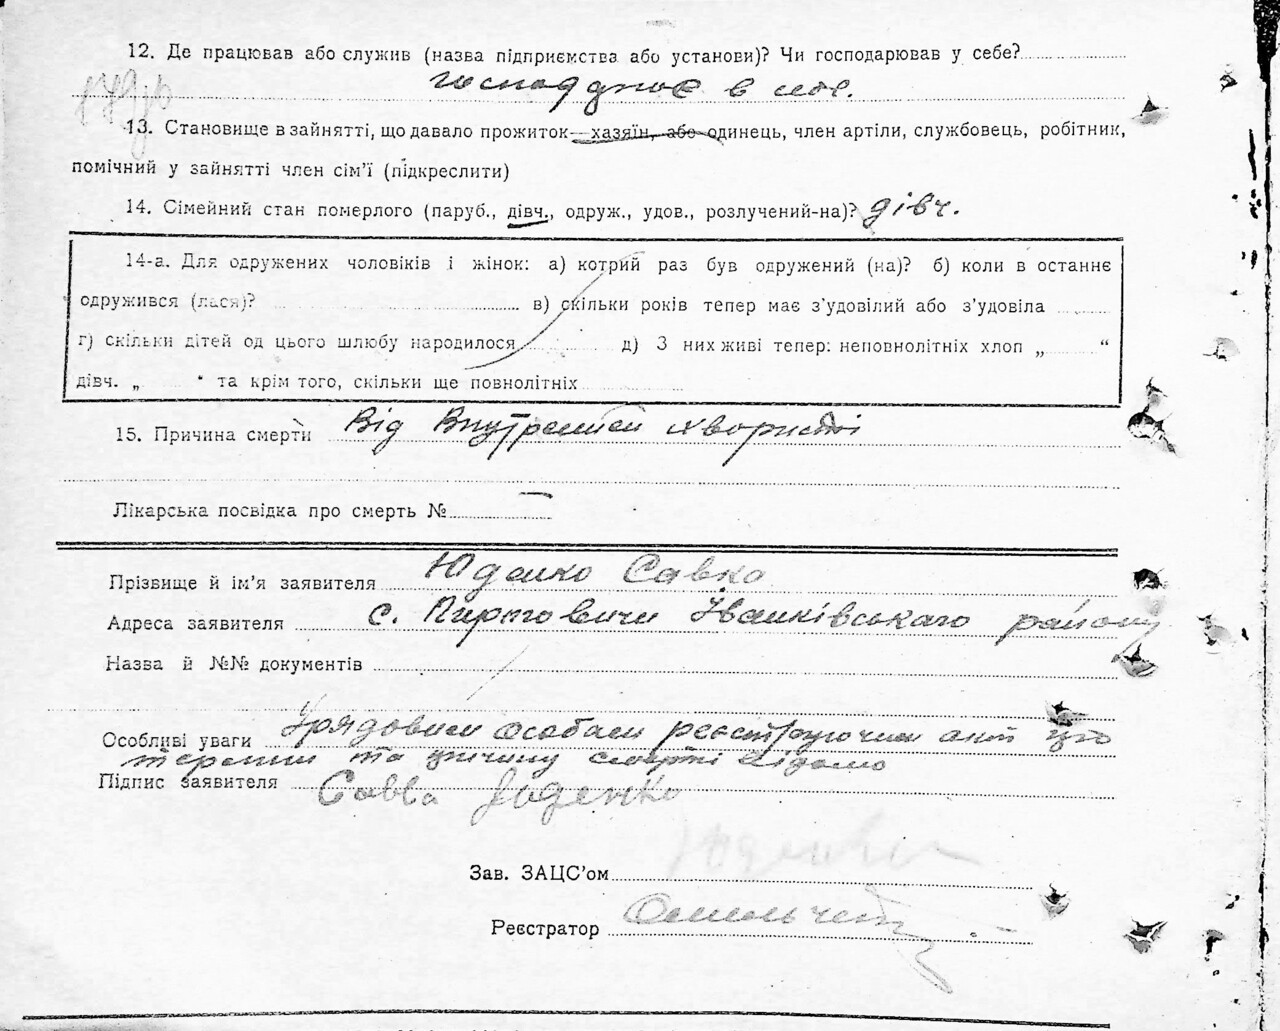 12. Де працював або служив (назва підприємства або установи)? Чи господарював у себе?
в
13. Становище в зайнятті, що давало прожиток—хазяїн, або одинець, член артіли, службовець, робітник,
помічний у зайнятті член сім’ї (підкреслити)
14. Сімейний стан померлого (паруб., дівч., одруж., удов., розлучений-на)? дівч.
14-а. Для одружених чоловіків і жінок: а) котрий раз був одружений (на)? б) коли в останнє
одружився (лася)? в) скільки років тепер має з’удовілий або з’удовіла
г) скільки дітей од цього шлюбу народилося д) З них живі тепер: неповнолітніх хлоп „ “
дівч. „ “ та крім того, скільки ще повнолітніх
15. Причина смерти Від Внутрешней хвористі
Лікарська посвідка про смерть № —
Прізвище й ім’я заявителя Юденко Савка
Адреса заявителя с. Іванківського району
Назва й №№ документів
Особливі уваги Урядовим особам реєструючим акт цю
та смерті відомо
Підпис заявителя Савва Юденко
Зав. ЗАЦС’ом
Реєстратор